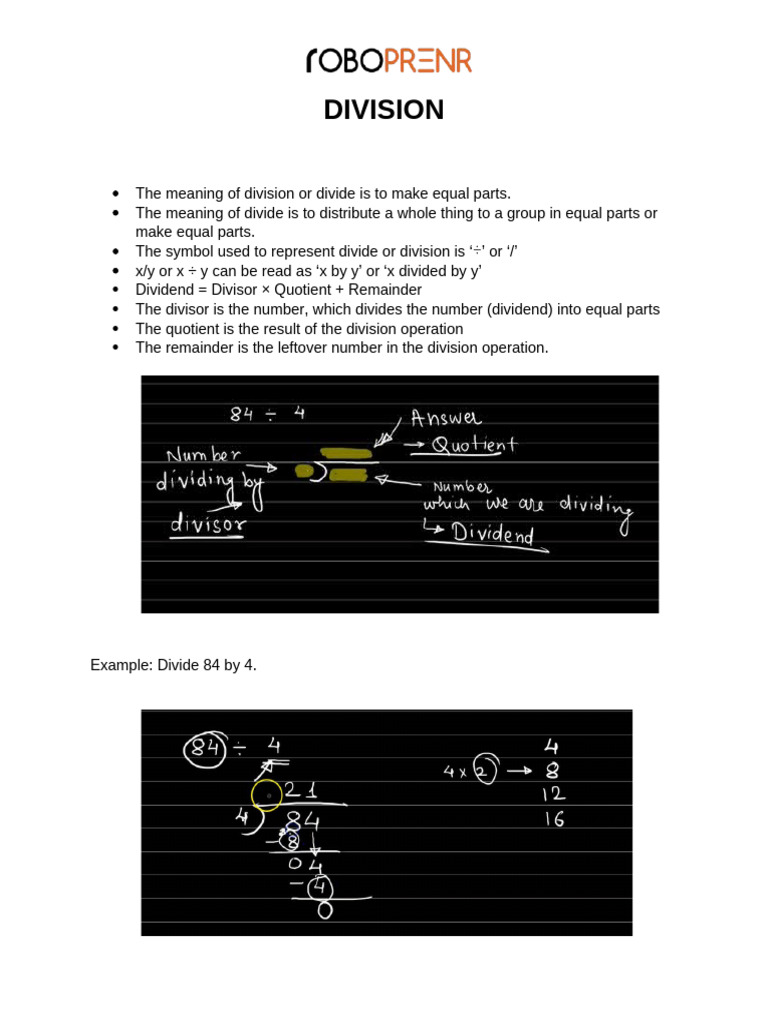 ROBOPRENR
DIVISION
• The meaning of division or divide is to make equal parts.
• The meaning of divide is to distribute a whole thing to a group in equal parts or
make equal parts.
• The symbol used to represent divide or division is ‘÷’ or ‘/’
• x/y or x ÷ y can be read as ‘x by y’ or ‘x divided by y’
• Dividend = Divisor × Quotient + Remainder
• The divisor is the number, which divides the number (dividend) into equal parts
• The quotient is the result of the division operation
• The remainder is the leftover number in the division operation.
84 ÷ 4
Answer
→ Quotient
Number
dividing by
divisor
Number
which we are dividing
Dividend
Example: Divide 84 by 4.
84 ÷ 4
21
4 ) 84
- 8
04
- 4
0
4
4 x 2 → 8
12
16